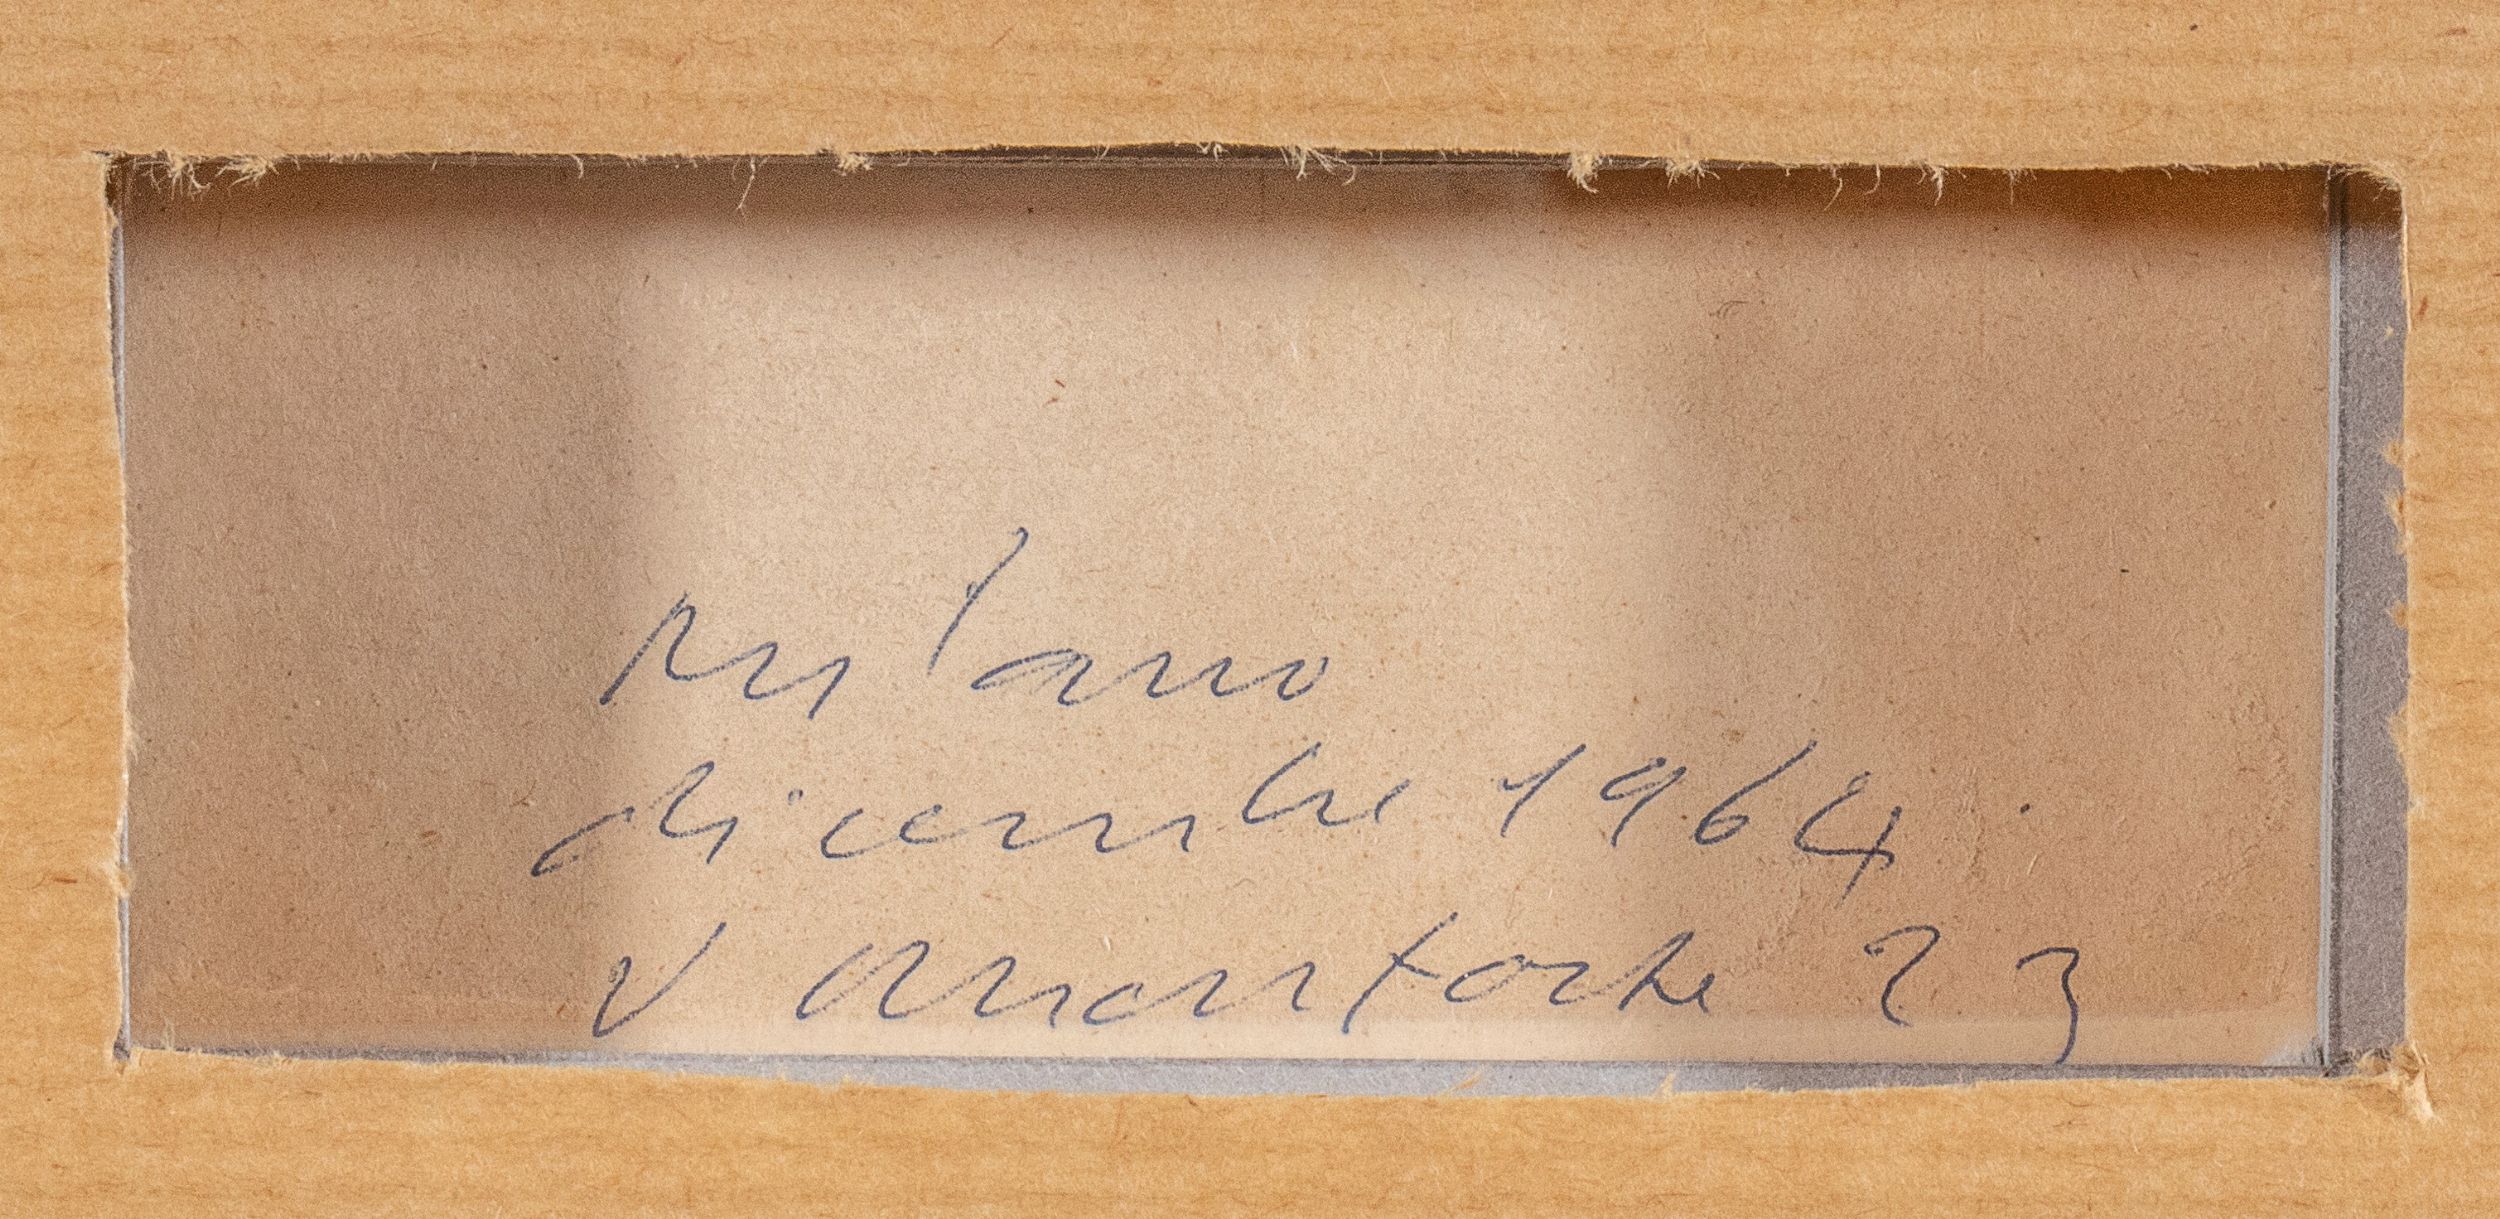 Milano
dicembre 1964.
V Monforte 23